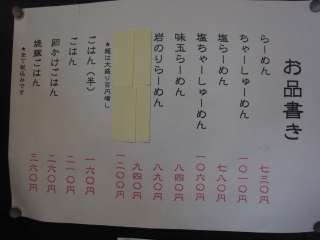 お品書き
らーめん 七三〇円
ちゃーしゅーめん 一〇一〇円
塩らーめん 七八〇円
塩ちゃーしゅーめん 一〇六〇円
味玉らーめん 八四〇円
岩のりらーめん 八九〇円
九四〇円
一二〇〇円
＊麺は大盛り百円増し
ごはん（半） 一六〇円
ごはん 二一〇円
卵かけごはん 二六〇円
焼豚ごはん 三六〇円
＊全て税込みです